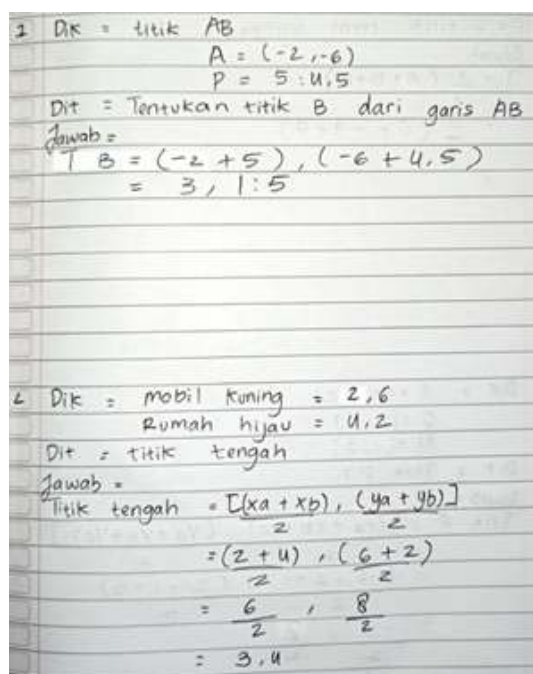 1 Dik = titik AB
A = (-2,-6)
P = 5:4,5
Dit = Tentukan titik B dari garis AB
Jawab =
T B = (-2 + 5), (-6 + 4,5)
= 3, 1:5
2 Dik = mobil kuning = 2,6
Rumah hijau = 4,2
Dit = titik tengah
Jawab =
Titik tengah = [(xa + xb), (ya + yb)]
2 2
= (2 + 4), (6 + 2)
2 2
= 6 , 8
2 2
= 3,4